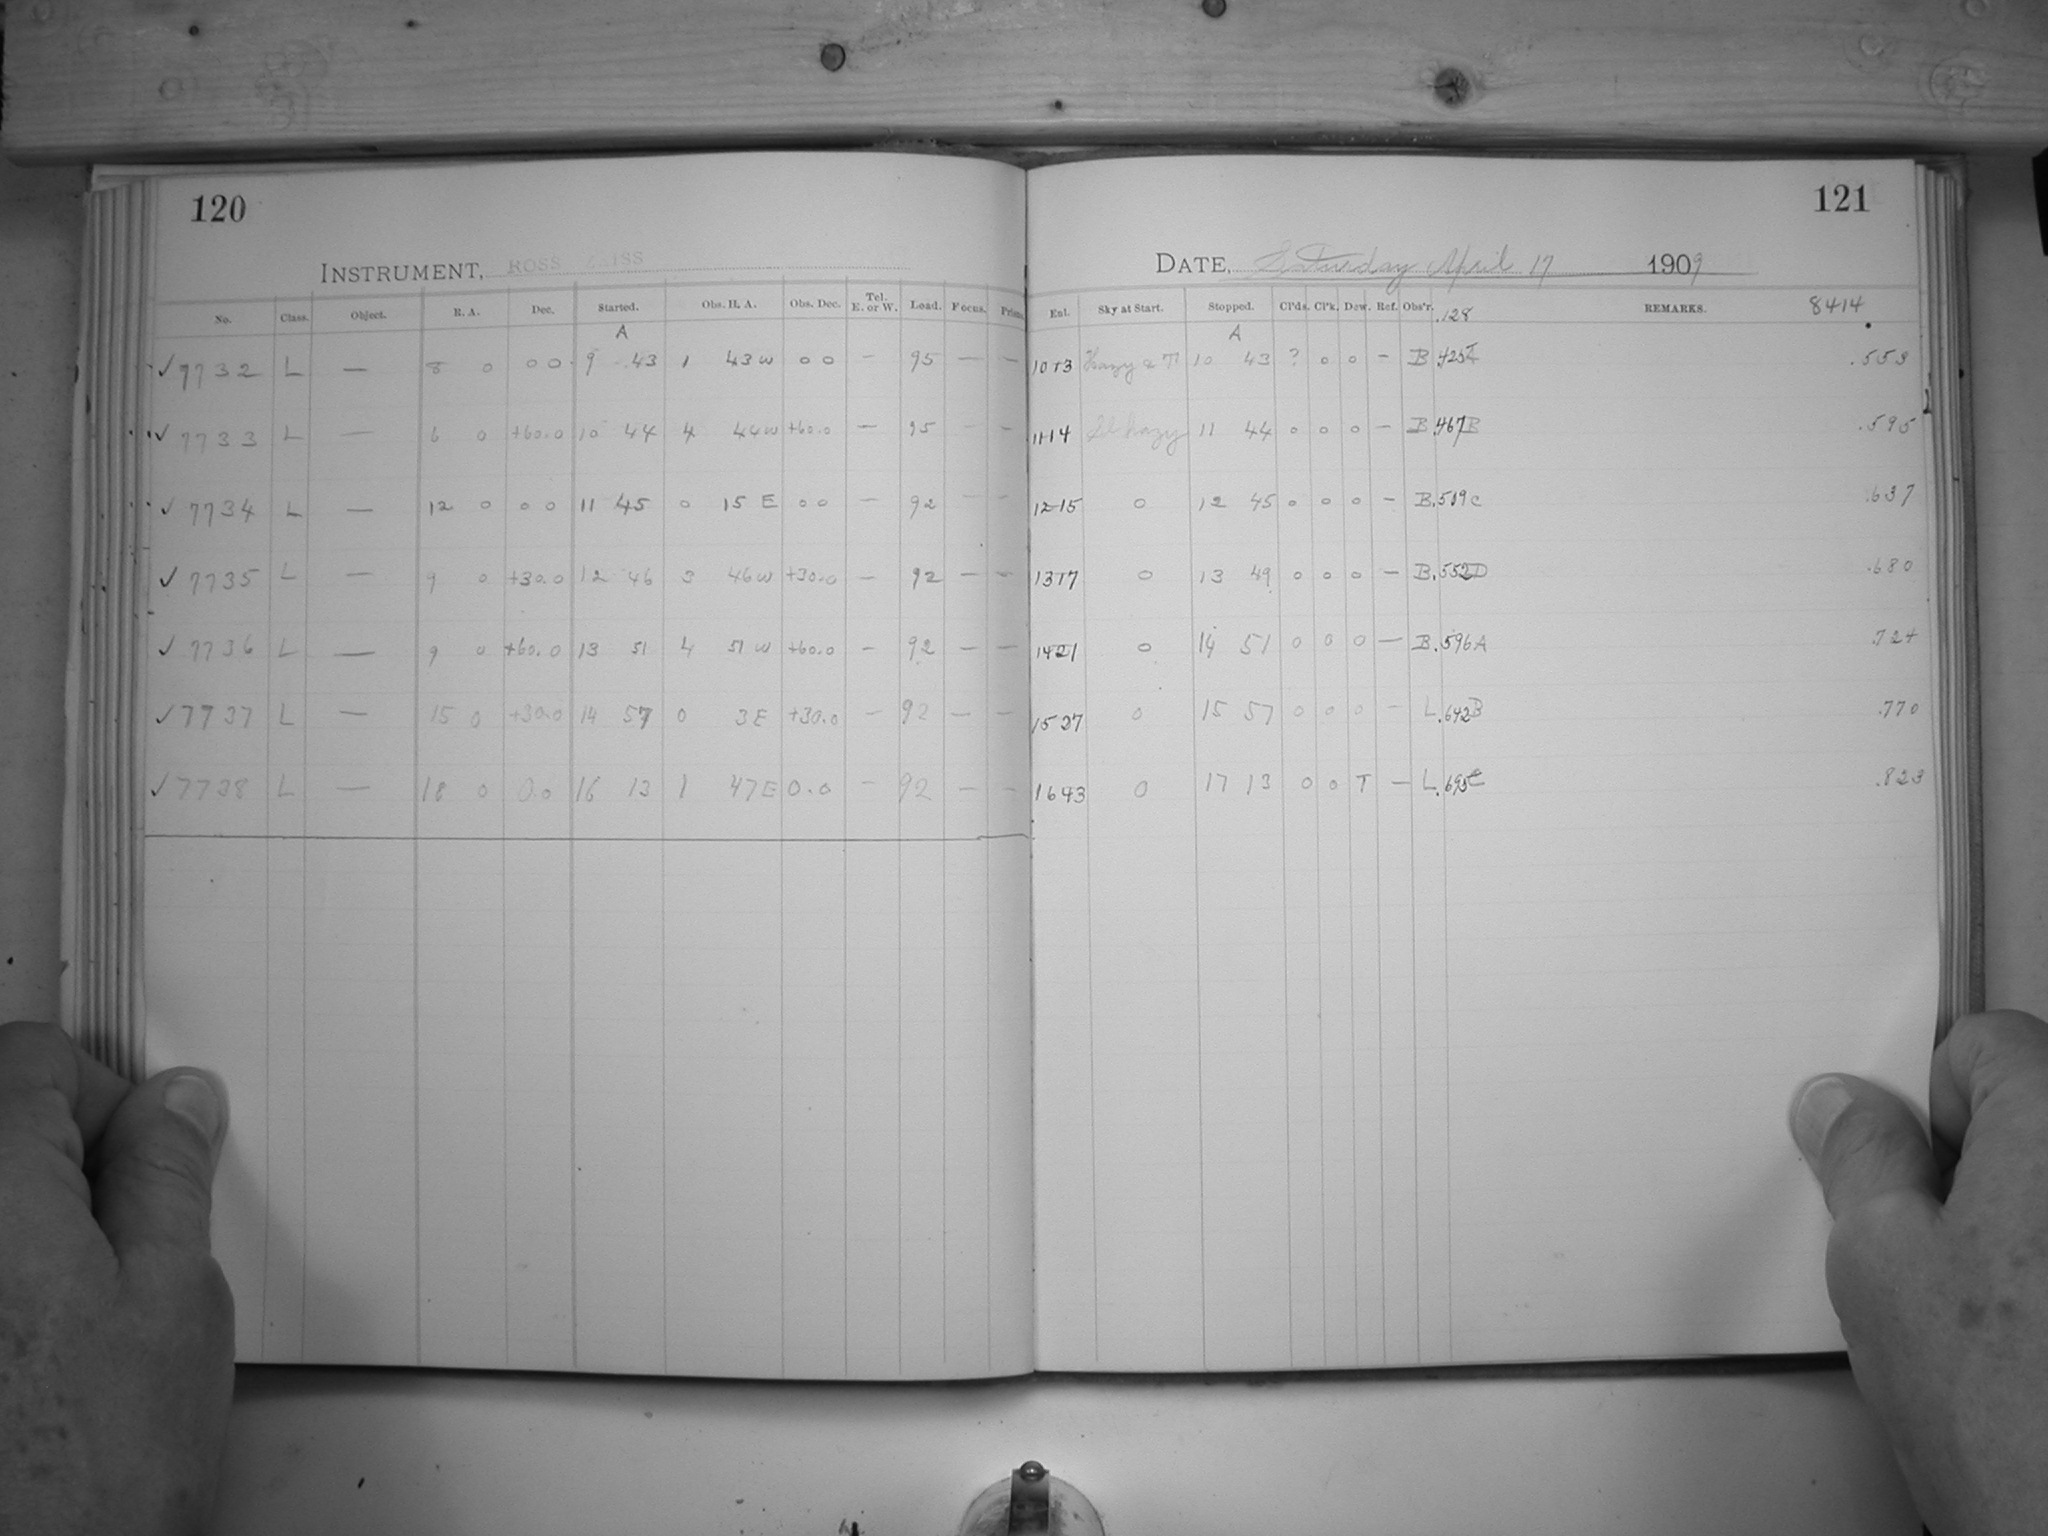 120
121
INSTRUMENT, ROSS ZEISS
DATE, Saturday April 17 1909
No. Class. Object. R. A. Dec. Started. Obs. H. A. Obs. Dec. Tel. E. or W. Load. Focus. Prisms. Ent. Sky at Start. Stopped. Cl'ds. Cl'k. Dew. Ref. Obs'r. .128 REMARKS. 8414
A A
✓ 7732 L — 8 0 0 0 9 43 1 43 W 0 0 — 95 — — 1013 Hazy & 10 43 ? 0 0 — B .425 .553
✓ 7733 L — 6 0 +60.0 10 44 4 44 W +60.0 — 95 — — 1114 Sl hazy 11 44 0 0 0 — B .467B .595
✓ 7734 L — 12 0 0 0 11 45 0 15 E 0 0 — 92 — — 1215 0 12 45 0 0 0 — B .509C .637
✓ 7735 L — 9 0 +30.0 12 46 3 46 W +30.0 — 92 — — 1317 0 13 49 0 0 0 — B .552D .680
✓ 7736 L — 9 0 +60.0 13 51 4 51 W +60.0 — 92 — — 1421 0 14 51 0 0 0 — B .596A .724
✓ 7737 L — 15 0 +30.0 14 57 0 3 E +30.0 — 92 — — 1527 0 15 57 0 0 0 — L .642B .770
✓ 7738 L — 18 0 0.0 16 13 1 47 E 0.0 — 92 — — 1643 0 17 13 0 0 T — L .695C .823